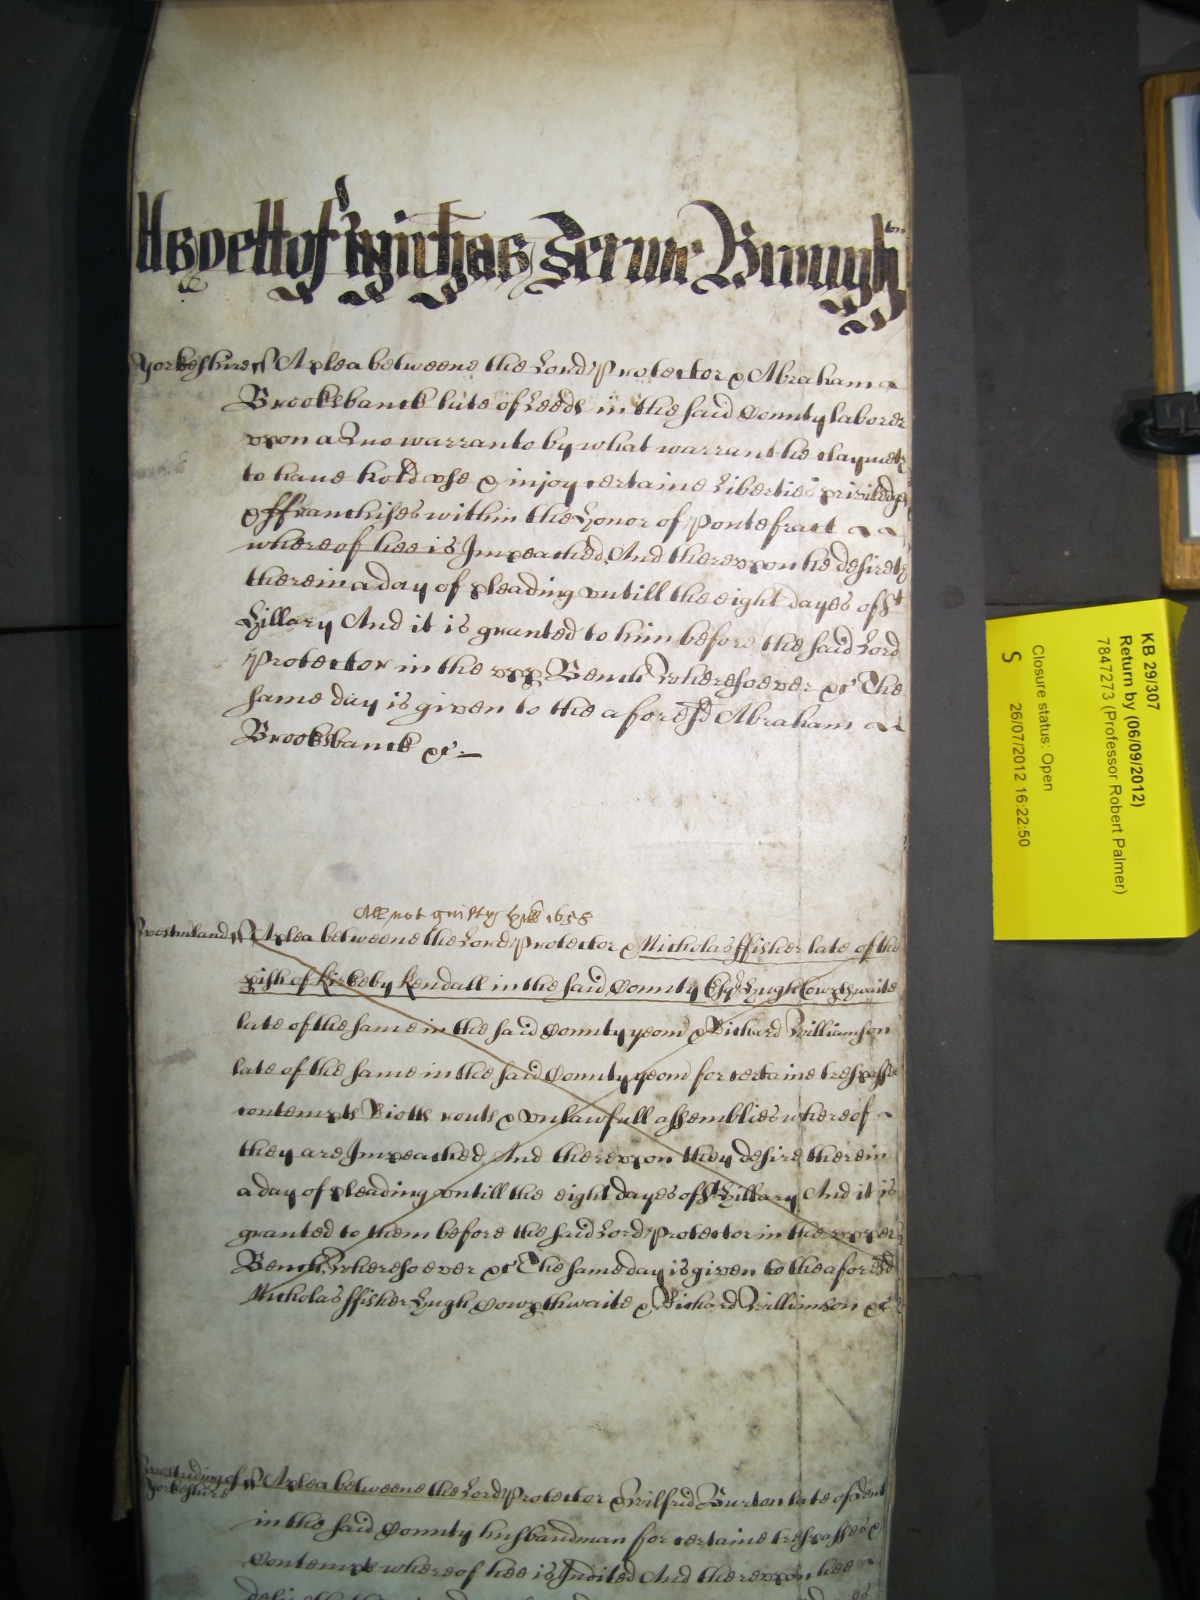 As yett of Michas Terme Broughton
Yorkeshire ss A plea betweene the Lord Protector & Abraham
Brooksbanck late of Leeds in the said County laborer
upon a Quo warranto by what warrant he claymeth
to have hold use & injoy certaine Liberties priviledges
& ffranchises within the Honor of Pontefract
whereof hee is Impeached And thereupon he desireth
therein a day of pleading untill the eight dayes of St
Hillary And it is granted to him before the said Lord
Protector in the upp Bench wheresoever &c The
same day is given to the aforesd Abraham
Brooksbanck &c
All not guilty 1658
Westmland ss A plea betweene the Lord Protector & Nicholas ffisher late of the
pish of Kirkeby Kendall in the said County Esqr Hugh Cowpthwaite
late of the same in the said County yeom & Richard Williamson
late of the same in the said County yeom for certaine trespasses
contempts Riotts routs & unlawfull assemblies whereof
they are Impeached And thereupon they desire therein
a day of pleading untill the eight dayes of St Hillary And it is
granted to them before the said Lord Protector in the upper
Bench wheresoever &c The same day is given to the aforesd
Nicholas ffisher Hugh Cowpthwaite & Richard Williamson &c
Westriding of
Yorkeshire
ss A plea betweene the Lord Protector & Wilfrid Burton late of Dent
in the said County husbandman for certaine trespasses &
Contempts whereof hee is Indited And thereupon hee
KB 29/307
Return by (06/09/2012)
7847273 (Professor Robert Palmer)
Closure status: Open
S 26/07/2012 16:22:50